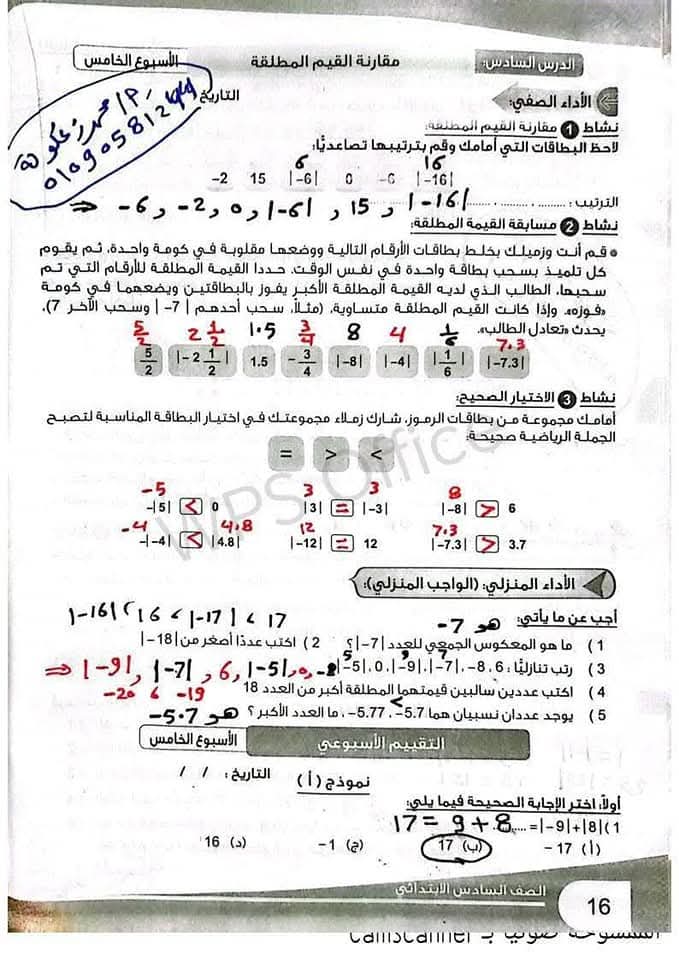 الدرس السادس: مقارنة القيم المطلقة الأسبوع الخامس
التاريخ
01090581244
الأداء الصفي:
نشاط 1 مقارنة القيم المطلقة:
لاحظ البطاقات التي أمامك وقم بترتيبها تصاعديًا:
6 16
−2 15 |−6| 0 −6 |−16|
الترتيب :
⇒ −6 , −2 , 0 , |−6| , 15 , |−16|
نشاط 2 مسابقة القيمة المطلقة:
* قم أنت وزميلك بخلط بطاقات الأرقام التالية ووضعها مقلوبة في كومة واحدة، ثم يقوم
كل تلميذ بسحب بطاقة واحدة في نفس الوقت. حددا القيمة المطلقة للأرقام التي تم
سحبها. الطالب الذي لديه القيمة المطلقة الأكبر يفوز بالبطاقتين ويضعهما في كومة
«فوزه». وإذا كانت القيم المطلقة متساوية، (مثلًا، سحب أحدهم |−7| وسحب الآخر 7).
يحدث «تعادل الطالب».
5/2 2 1/2 1.5 3/4 8 4 1/6 7.3
5/2 |−2 1/2| 1.5 −3/4 |−8| |−4| |1/6| |−7.3|
نشاط 3 الاختيار الصحيح:
أمامك مجموعة من بطاقات الرموز، شارك زملاء مجموعتك في اختيار البطاقة المناسبة لتصبح
الجملة الرياضية صحيحة:
= > <
−5 3 3 8
−|5| < 0 |3| = |−3| |−8| > 6
−4 4.8 12 7.3
−|−4| < |4.8| |−12| = 12 |−7.3| > 3.7
WPS Office
الأداء المنزلي: (الواجب المنزلي):
أجب عن ما يأتي: هو −7
|−16| < 16 < |−17| < 17
1 ) ما هو المعكوس الجمعي للعدد |−7|؟ 2 ) اكتب عددًا أصغر من |−18|
5 9 7
3 ) رتب تنازليًا : 6 ,8− ,|7−| ,|9−| ,0 ,|5−|
⇒ |−9| , |−7| , 6 , |−5| , 0 , −8
4 ) اكتب عددين سالبين قيمتهما المطلقة أكبر من العدد 18
−20 6 −19
5 ) يوجد عددان نسبيان هما 5.7− ، 5.77− ، ما العدد الأكبر؟ هو −5.7
<
التقييم الأسبوعي الأسبوع الخامس
نموذج ( أ ) التاريخ : / /
أولًا: اختر الإجابة الصحيحة فيما يلي:
1 ) |8|+|−9|= ...... 8 + 9 = 17
(أ) 17− (ب) 17 (ج) 1− (د) 16
الصف السادس الابتدائي
16
الممسوحة ضوئيا بـ CamScanner